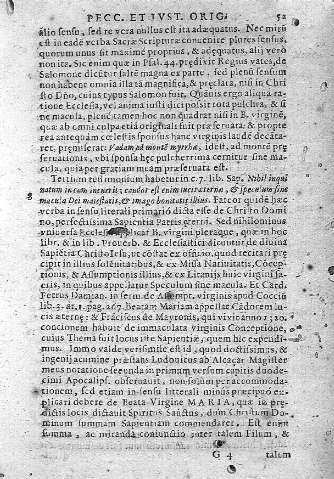 PECC. ET IUST. ORIG. 52
alio sensu, sed re vera nullus est ita adæquatus. Nec mirũ
est in eadẽ verba Sacræ Scripturæ convenire plures sensus,
quorum unus sit maximè proprius, & adæquatus, alij verò
non ita. Sic enim quæ in Psal. 44. prædixit Regius vates, de
Salomone dicũtur salté magna ex parte, sed plenũ sensum
non habent omnia illa tã magnifica, & præclara, nisi in Chri
sto Dño, cuius typus Salomon fuit. Quãvis ergo aliqua ra-
tione Ecclesia, vel anima iusti dici possit tota pulchra, & si
ne macula, plenũ tamen hoc non quadrat nisi in B. virginẽ,
quæ ab omni culpa etiã originali fuit præservata: & propte
rea antequàm cælestis sponsus hanc virginis laudẽ decãta-
ret, præmiserat: Vadam ad montẽ myrrhæ, id est, ad montẽ præ
servationis, ubi sponsa hęc pulcherrima cernitur sine ma-
cula, quia per gratiam meam præservata est.
Tertium testimonium habetur in c. 7. lib. Sap. Nihil inqui
natum in eam incurrit: candor est enim lucis æternæ, & speculum sine
macula Dei maiestatis, & imago bonitatis illius. Fateor quidẽ hæc
verba in sensu literali primario dicta esse de Christo Domi
no, perfectissima Sapientia Patris æterni. Sed nihilominus
universa Ecclesia B. virgini pleraque, quæ in hoc
libr. & in lib. Proverb. & Ecclesiastici dicuntur de divina
Sapiẽtia Christo Iesu, ut cõstat ex officio, quod recitari præ
cipit in illius solẽnitatibus, & ex Missa Nativitatis, Cõcep-
tionis, & Assumptionis illius, & ex Litanijs huic virgini sa-
cris, in quibus appellatur Speculum sine macula. Et Card.
Petrus Damian. in serm. de Assumpt. virginis apud Coccíũ
lib. 3. ar. 1. pag. 267. Beatam Mariam appellat Cãdorem lu-
cis æternæ: & Frãciscus de Mayronis, qui
concionem habuit de immaculata virginis Conceptione,
cuius Thema fuit locus iste Sapientiæ, quem hic expendi-
mus. Immo valde verisimile est id, quod doctissimus, &
ingenij acumine præstans Ludovicus ab Alcaçar Magister
meus notatione secunda in primum versum capitis duode-
cimi Apocalyps. observavit, non solùm per accommoda-
tionem, sed etiam in sensu literali minùs præcipuo ex-
plicari debere de Beata Virgine MARIA, quæ in præ-
dictis locis dictavit Spiritus Sanctus, dum Christum Do-
minum summam Sapientiam commendaret. Est enim
summa, ac miranda coniunctio inter talem Filium, &
G 4 talem